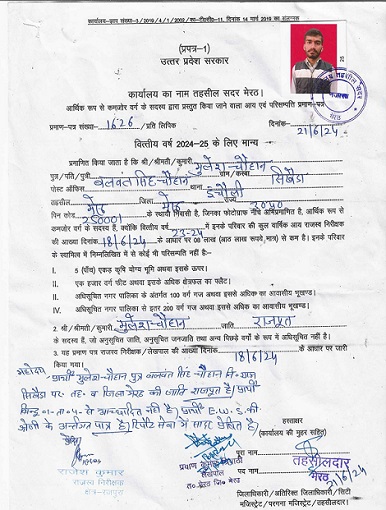 कार्यालय-ज्ञाप संख्या-3/2019/4/1/2002/का-2/19टी०सी०-11, दिनांक 14 मार्च 2019 का संलग्नक
(प्रपत्र-1)
उत्तर प्रदेश सरकार
कार्यालय का नाम तहसील सदर मेरठ।
आर्थिक रूप से कमजोर वर्ग के सदस्य द्वारा प्रस्तुत किया जाने वाला आय एवं परिसम्पत्ति प्रमाण-पत्र
प्रमाण-पत्र संख्या- 1626 /प्रति लिपिक दिनांक- 21/6/24
वित्तीय वर्ष 2024-25 के लिए मान्य
प्रमाणित किया जाता है कि श्री/श्रीमती/कुमारी मुलेश-चौहान
पुत्र/पति/पुत्री बलवंत सिंह-चौहान ग्राम/कस्बा सिखैडा
पोस्ट ऑफिस थाना इंचौली
तहसील मेरठ जिला मेरठ राज्य उ०प्र०
पिन कोड 250001 के स्थायी निवासी है, जिनका फोटोग्राफ नीचे अभिप्रमाणित है, आर्थिक रूप से
कमजोर वर्ग के सदस्य हैं, क्योंकि वित्तीय वर्ष 23-24 में इनके परिवार की कुल वार्षिक आय राजस्व निरीक्षक
की आख्या दिनांक 18/6/24 के आधार पर 08 लाख (आठ लाख रूपये मात्र) से कम है। इनके परिवार
के स्वामित्व में निम्नलिखित में से कोई भी परिसम्पत्ति नहीं है:-
I. 5 (पाँच) एकड़ कृषि योग्य भूमि अथवा इसके ऊपर।
II. एक हजार वर्ग फीट अथवा इससे अधिक क्षेत्रफल का फ्लैट।
III. अधिसूचित नगर पालिका के अंतर्गत 100 वर्ग गज अथवा इससे अधिक का आवासीय भूखण्ड।
IV. अधिसूचित नगर पालिका से इतर 200 वर्ग गज अथवा इससे अधिक का आवासीय भूखण्ड।
2. श्री/श्रीमती/कुमारी मुलेश-चौहान जाति राजपूत
के सदस्य हैं, जो अनुसूचित जाति, अनुसूचित जनजाति तथा अन्य पिछड़े वर्गों के रूप में अधिसूचित नहीं है।
3. यह प्रमाण पत्र राजस्व निरीक्षक / लेखपाल की आख्या दिनांक 18/6/24 के आधार पर जारी
किया गया।
महोदय
प्रार्थी मुलेश-चौहान पुत्र बलवंत सिंह-चौहान नि०
सिखैडा तह० व जिला मेरठ की जाति राजपूत है। प्रार्थी
बिन्दु -1-2-4- से आच्छादित नहीं है। प्रार्थी E.W.S. की
श्रेणी के अन्तर्गत पात्र है। रिपोर्ट सेवा में सादर प्रेषित है।
हस्ताक्षर
(कार्यालय की मुहर सहित)
पूरा नाम
पद नाम तहसीलदार
मेरठ
21/6/24
राजेश कुमार
राजस्व निरीक्षक
लेखपाल
त० मेरठ जि० मेरठ
जिलाधिकारी/अतिरिक्त जिलाधिकारी/सिटी
मजिस्ट्रेट/परगना मजिस्ट्रेट/तहसीलदार।